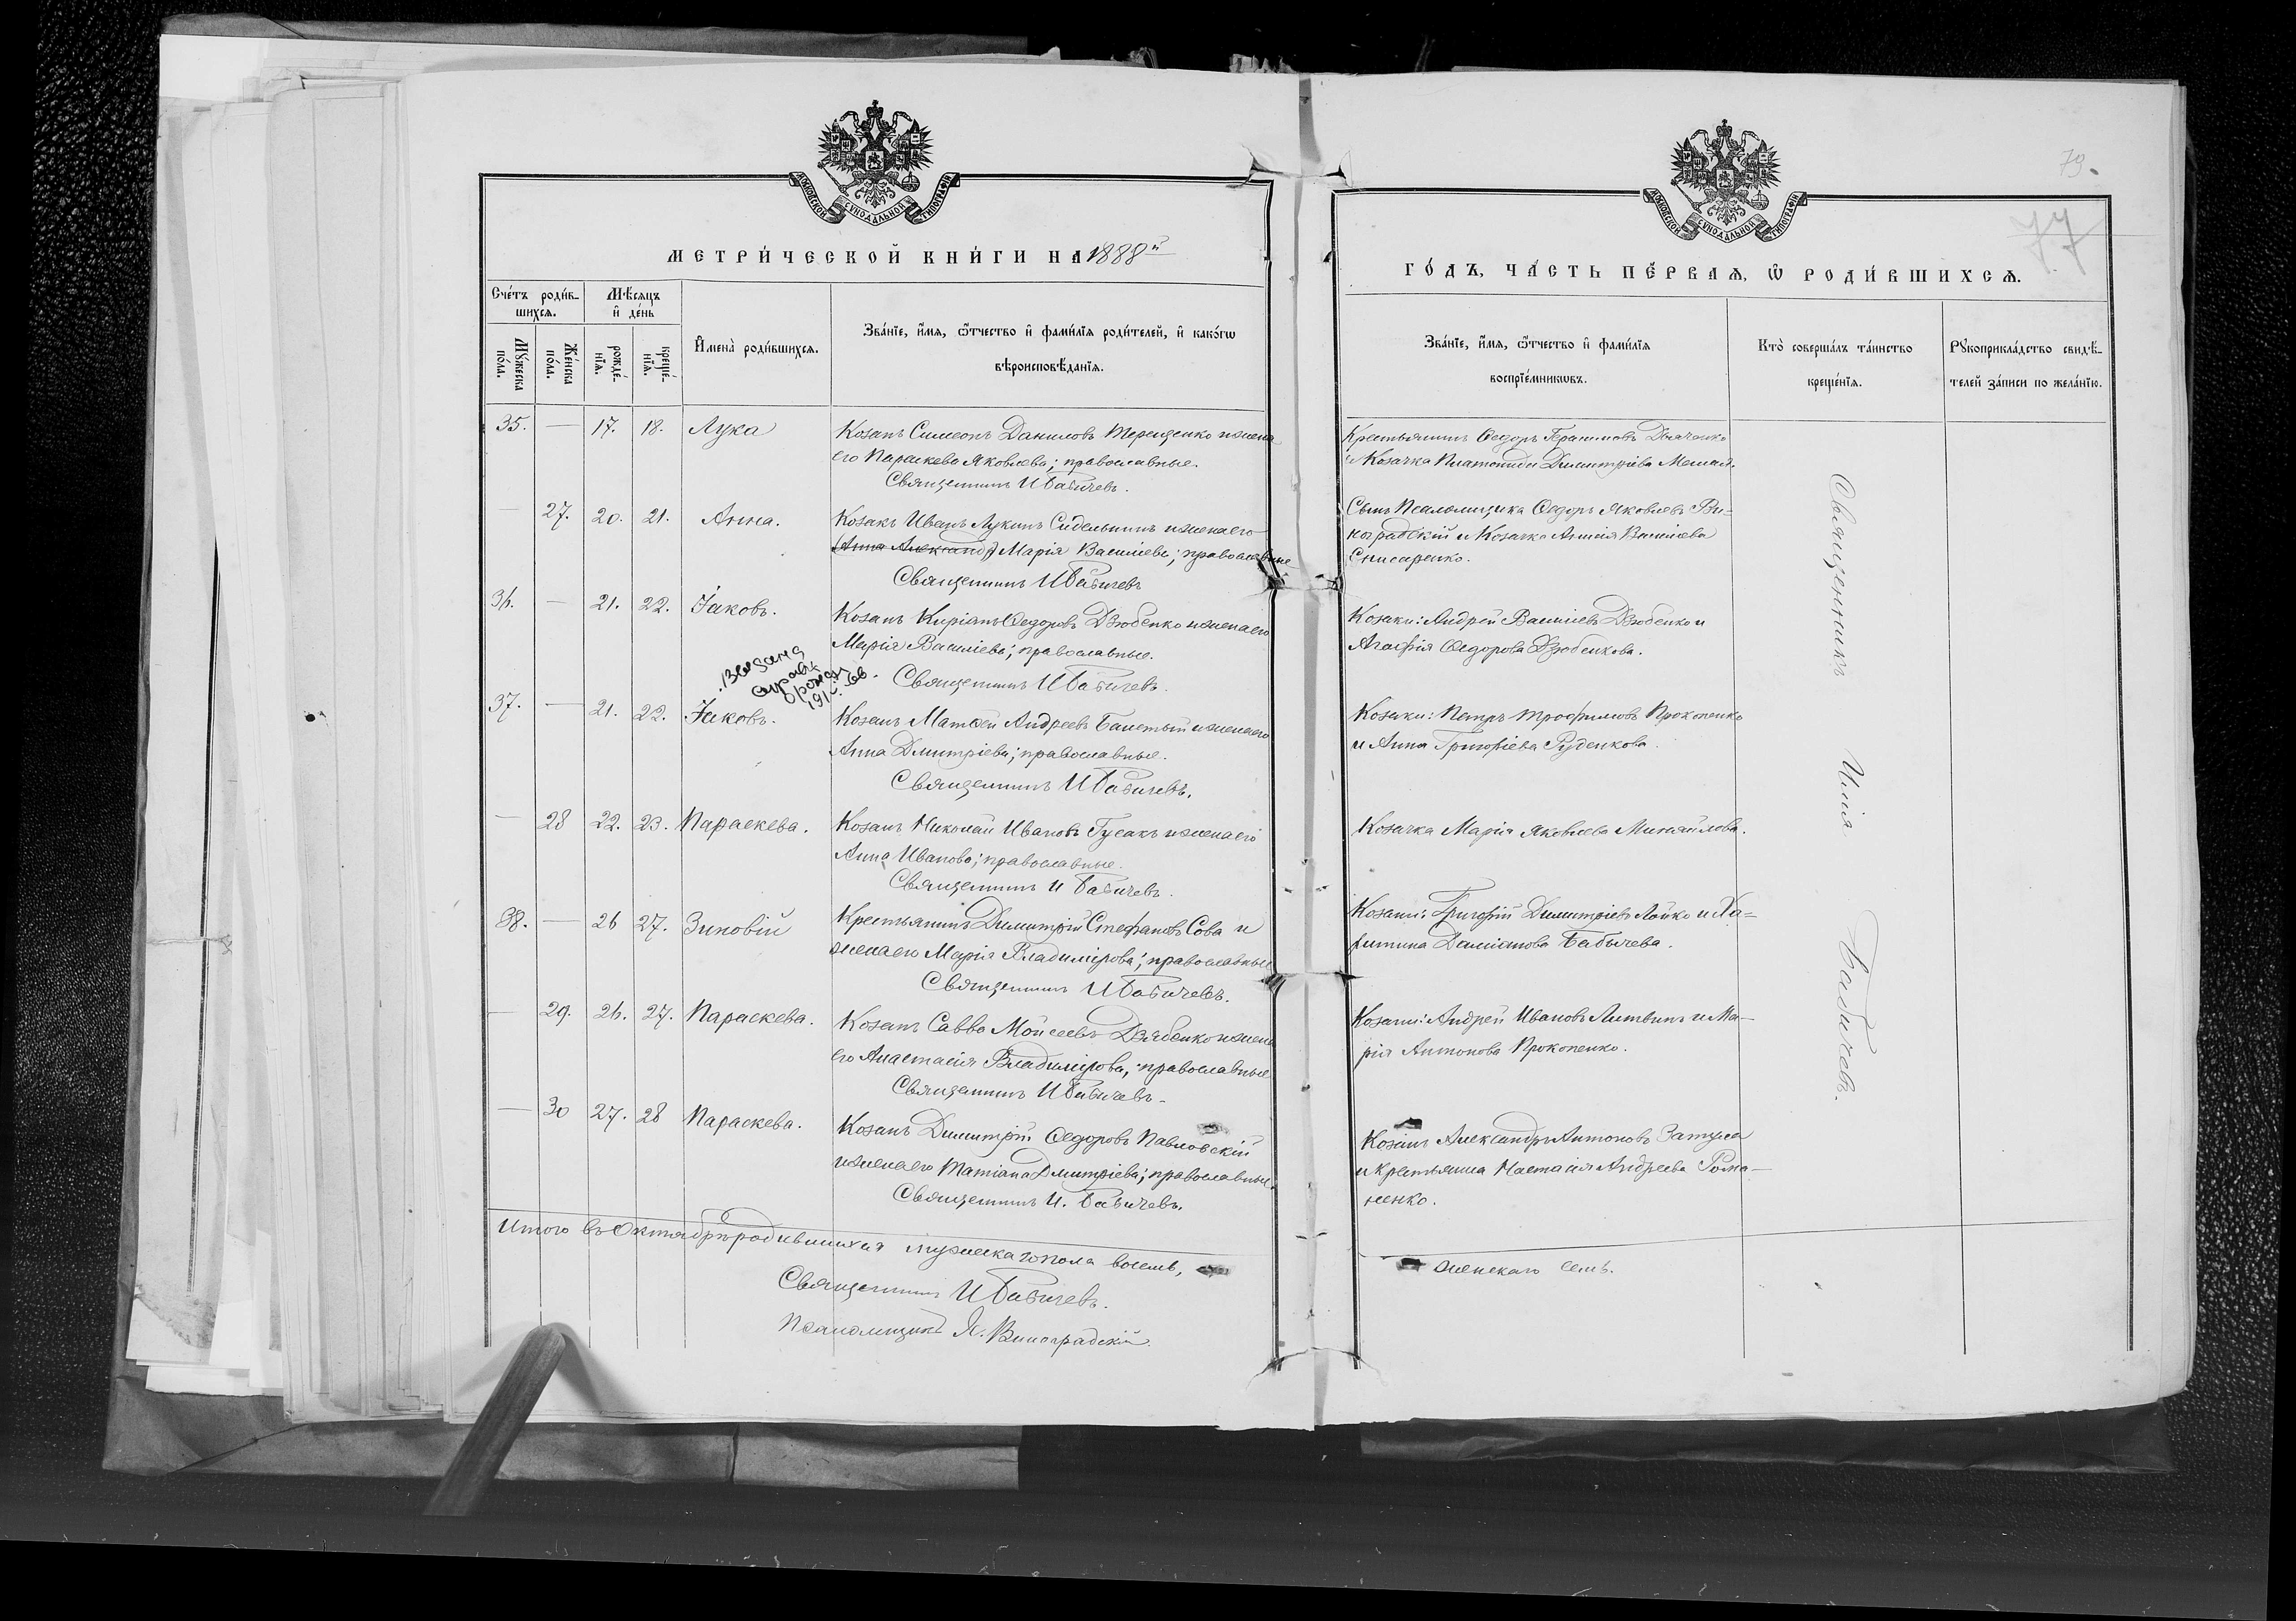 МОСКОВСКОЙ СУНОДАЛЬНОЙ ТИПОГРАФІИ
МЕТРИ́ЧЕСКОЙ КНИ́ГИ НА 1888й
Сче́тъ роди́в-
шихся.
Мѣ́сяцъ
и҆ де́нь
Мꙋ́жеска
по́ла.
Же́нска
по́ла.
рожде́-
нїѧ.
креще́-
нїѧ.
И҆мена̀ роди́вшихсѧ.
Зва́нїе, и҆́мѧ, ѻ҆́тчество и҆ фами́лїѧ роди́телей, и҆ како́гѡ
вѣроисповѣ́данїѧ.
35. — 17. 18. Лука
Козакъ Симеонъ Даниловъ Терещенко и жена
его Параскева Яковлева; православные.
Священникъ И Бабичевъ.
27. 20. 21. Анна.
Козакъ Иванъ Лукинъ Сидельникъ и жена его
(Анна Александ) Марія Василіева; православные
Священникъ И Бабичевъ
36. — 21. 22. Іаковъ.
Козакъ Киріанъ Ѳедоровъ Дзюбенко и жена его
Марія Василіева; православные.
Священникъ И Бабичевъ.
37. — 21. 22. Іаковъ.
Козакъ Матѳей Андреевъ и жена его
Анна Дмитріева; православные.
Священникъ И Бабичевъ.
— 28 22. 23. Параскева.
Козакъ Николай Ивановъ Гусакъ и жена его
Анна Иванова; православные.
Священникъ И Бабичевъ.
38. — 26 27. Зиновій
Крестьянинъ Димитрій Стефановъ Сова и
жена его Марія Владимірова; православные
Священникъ И Бабичевъ.
— 29. 26. 27. Параскева.
Козакъ Савва Моисеевъ и жена
его Анастасія Владимірова, православные
Священникъ И Бабичевъ.
— 30 27. 28 Параскева.
Козакъ Димитрій Ѳедоровъ Павловскій
и жена его Татіана Дмитріева; православные.
Священникъ И. Бабичевъ.
Итого въ Октябрѣ родившихся мужеска го пола восемь,
Священникъ И Бабичевъ.
Псаломщикъ Я. Виноградскій.
79.
77
МОСКОВСКОЙ СУНОДАЛЬНОЙ ТИПОГРАФІИ
ГО́ДЪ, ЧА́СТЬ ПЕ́РВАѦ, Ѡ҆ РОДИ́ВШИХСѦ.
Зва́нїе, и҆́мѧ, ѻ҆́тчество и҆ фами́лїѧ
воспрїе́мникѡвъ.
Кто̀ соверша́лъ та́инство
креще́нїѧ.
Рꙋкоприкла́дство свидѣ́-
телей за́писи по жела́нїю.
Крестьянинъ Ѳедоръ Герасимовъ Дьяченко
и Козачка Платонида Димитріева
Сынъ Псаломщика Ѳедоръ Яковлевъ Ви-
ноградскій и Козачка Василіева
Снисаренко.
Козаки: Андрей Василіевъ Дзюбенко и
Агафія Ѳедорова Дзюбенкова.
Козаки: Петръ Трофимовъ Прокопенко
и Анна Григоріева Руденкова.
Козачка Марія Яковлева Михайлова.
Козаки: Григорій Димитріевъ Лойко и Ха-
ритина Даміанова Бабычева.
Козаки: Андрей Ивановъ Литвинъ и Ма-
рія Антонова Прокопенко.
Козакъ Александръ Антоновъ
и крестьянка Настасія Андреева Рома-
ненко.
женскаго семь.
Священникъ Илія Бабичевъ.